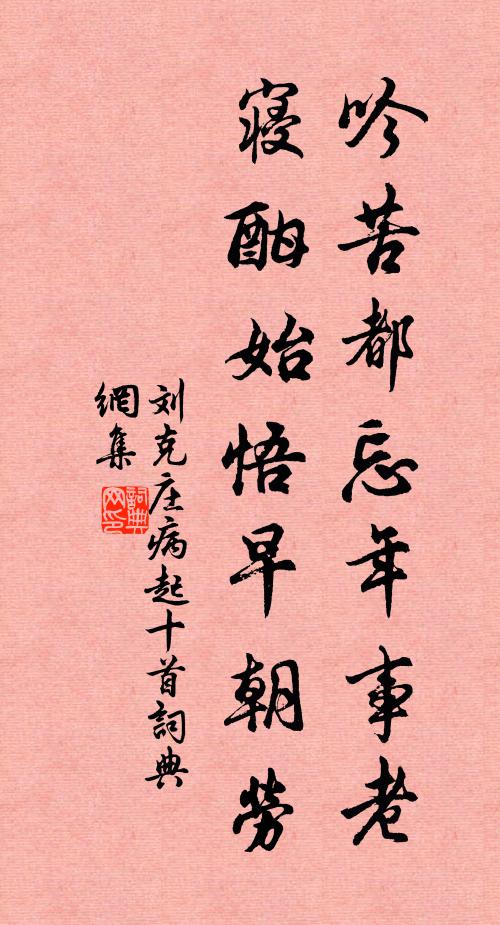 吟苦都忘年事老
寢酣始悟早朝勞
刘克庄病起十首詞典
網集
詞典
网印